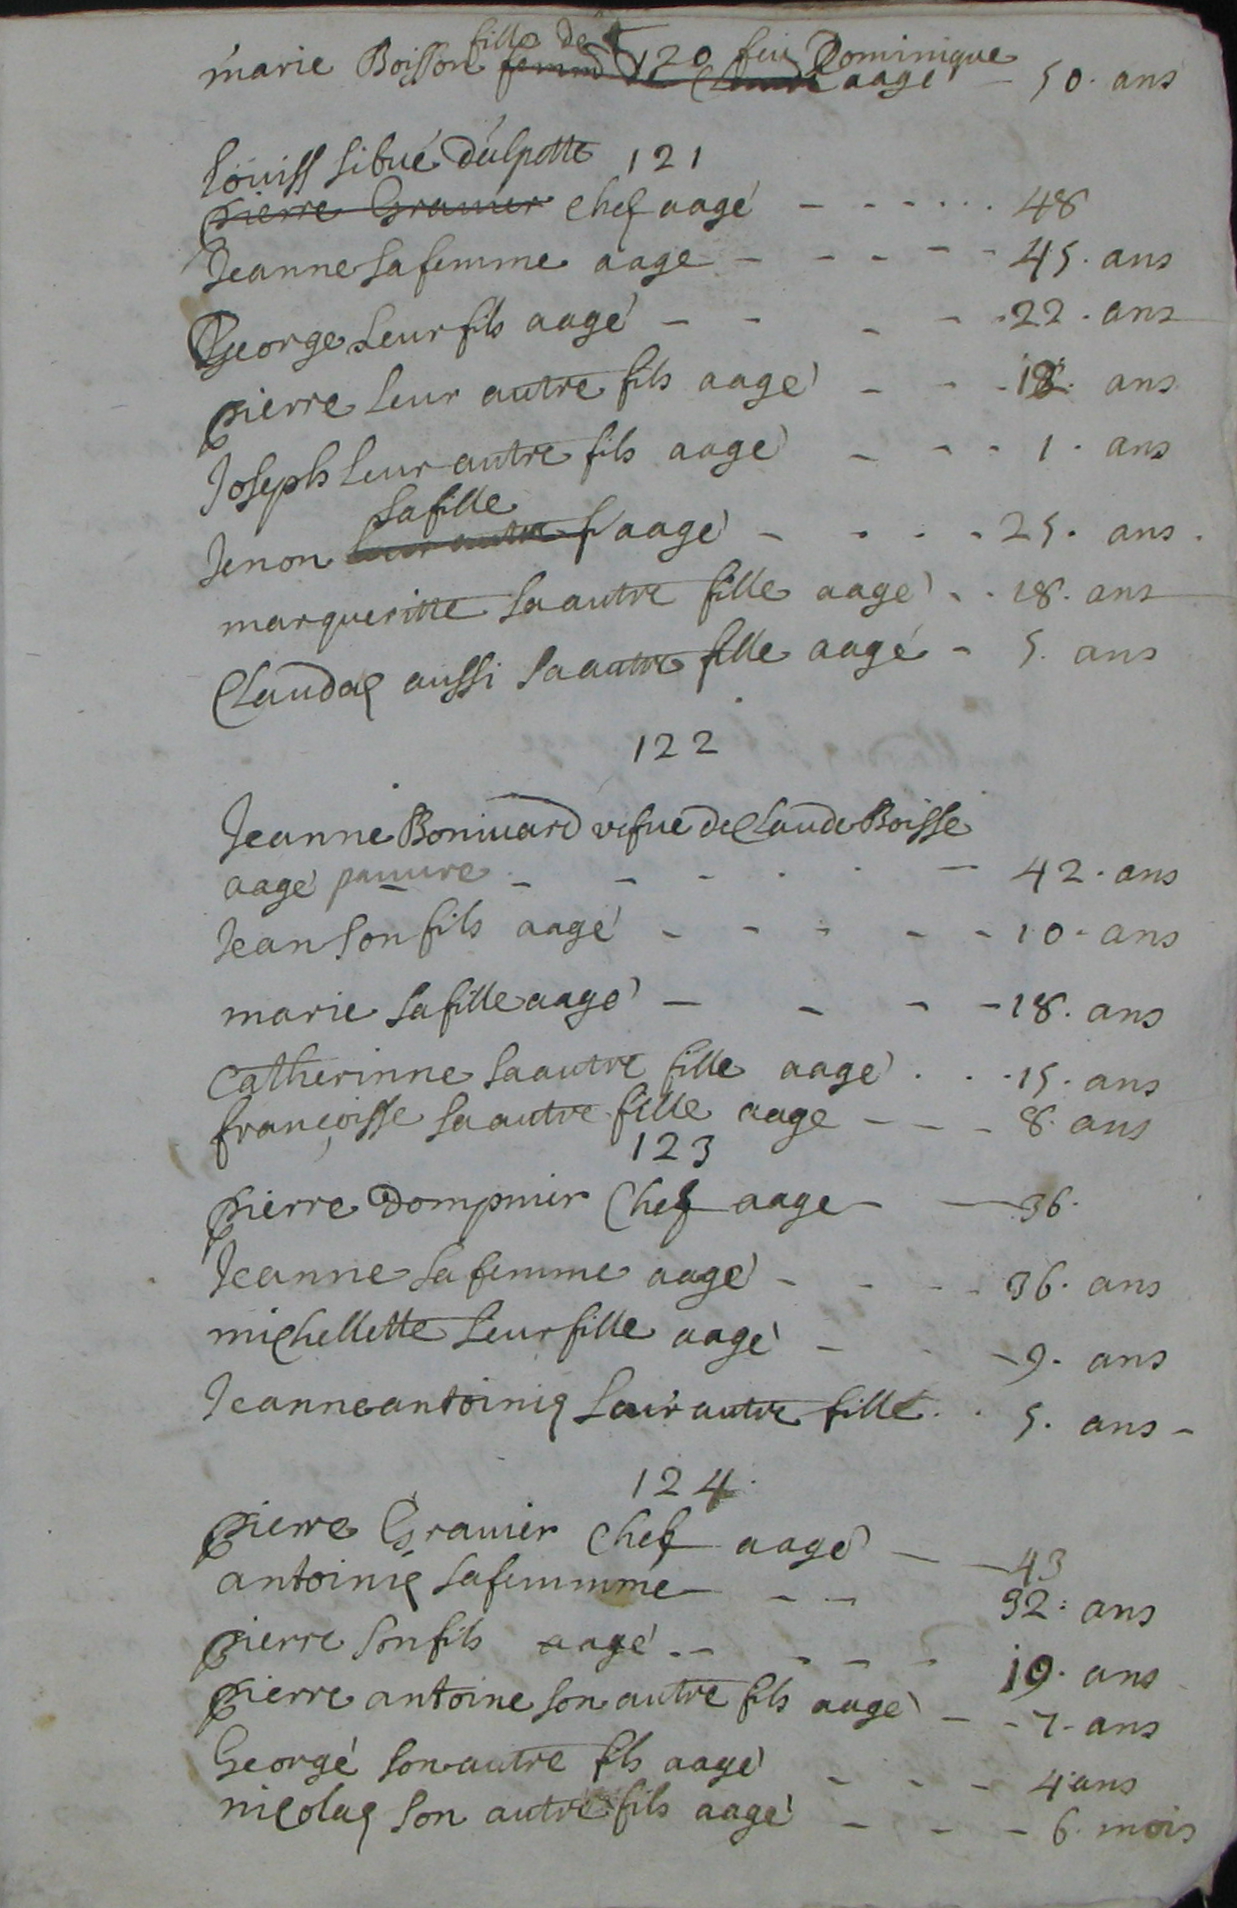 120
fille de feu Dominique
marie Boisson femme Claude aage — 50. ans
121
Loüiss Sibué dulpotte
pierre Grauier chef aagé - - - - - - 48
Jeanne sa femme aage - - - - - 45. ans
George leur fils aagé - - - - 22. ans
pierre leur autre fils aagé - - - 12. ans
Joseph leur autre fils aagé - - - 1. ans
sa fille
Jenon leur autre f aagé - - - - 25. ans.
margueritte sa autre fille aagé - - 18. ans
Clauda aussi sa autre fille aagé - 5. ans
122
Jeanne Boniuard vefue de Claude Boisse
aagé pauure - - - - - - 42. ans
Jean son fils aagé - - - - - 10. ans
marie sa fille aagé - - - - 18. ans
Catherinne sa autre fille aagé . . . 15. ans
françoisse sa autre fille aage - - - 8. ans
123
pierre Dompnier Chef aage - — 36.
Jeanne sa femme aagé - - - - 36. ans
michellette leur fille aagé - - - 9. ans
Jeanneantoinia leur autre fille . . 5. ans -
124.
pierre Grauier Chef aagé — — 43
antoinia sa femmme - - - 32: ans
pierre son fils aagé - - - - 10. ans
pierre antoine son autre fils aagé - - 7. ans
Georgé son autre fils aagé - - - 4 ans
nicolas son autre fils aagé - - - 6. mois